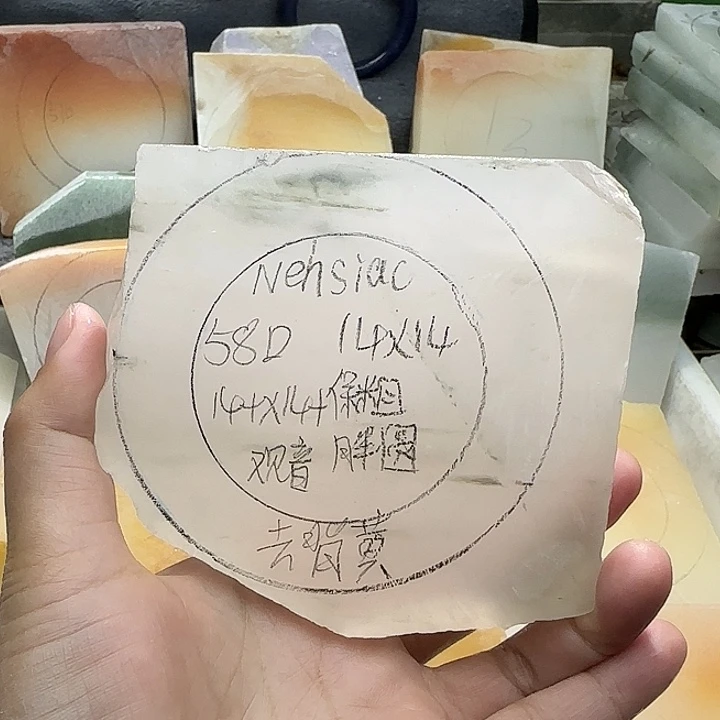 Nehsiac
58D 14X14
14+X14+保粗
观音 胖圆
去背莫